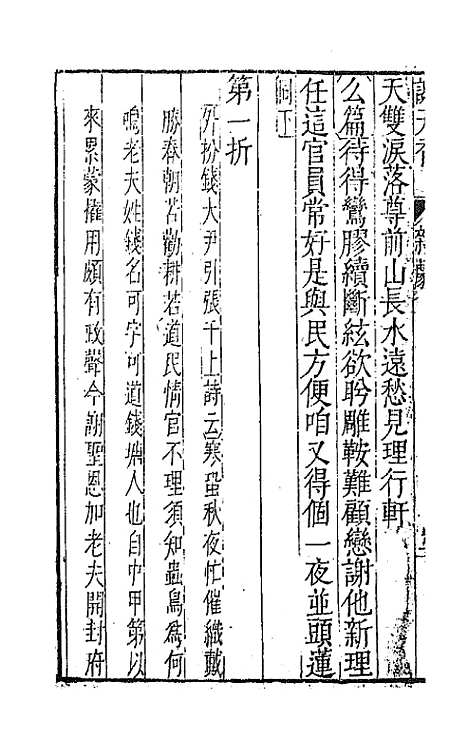 天雙淚落尊前山長水遠愁見理行軒
么篇待得鸞膠續斷絃欲盻雕鞍難顧戀謝他新理
任這官員常好是與民方便咱又得個一夜並頭蓮
同下
第一折
外扮錢大尹引張千上詩云寒蛩秋夜忙催織戴
勝春朝苦勸耕若道民情官不理須知蟲鳥爲何
鳴老夫姓錢名可字可道錢塘人也自中甲第以
來累蒙擢用頗有政聲今謝聖恩加老夫開封府